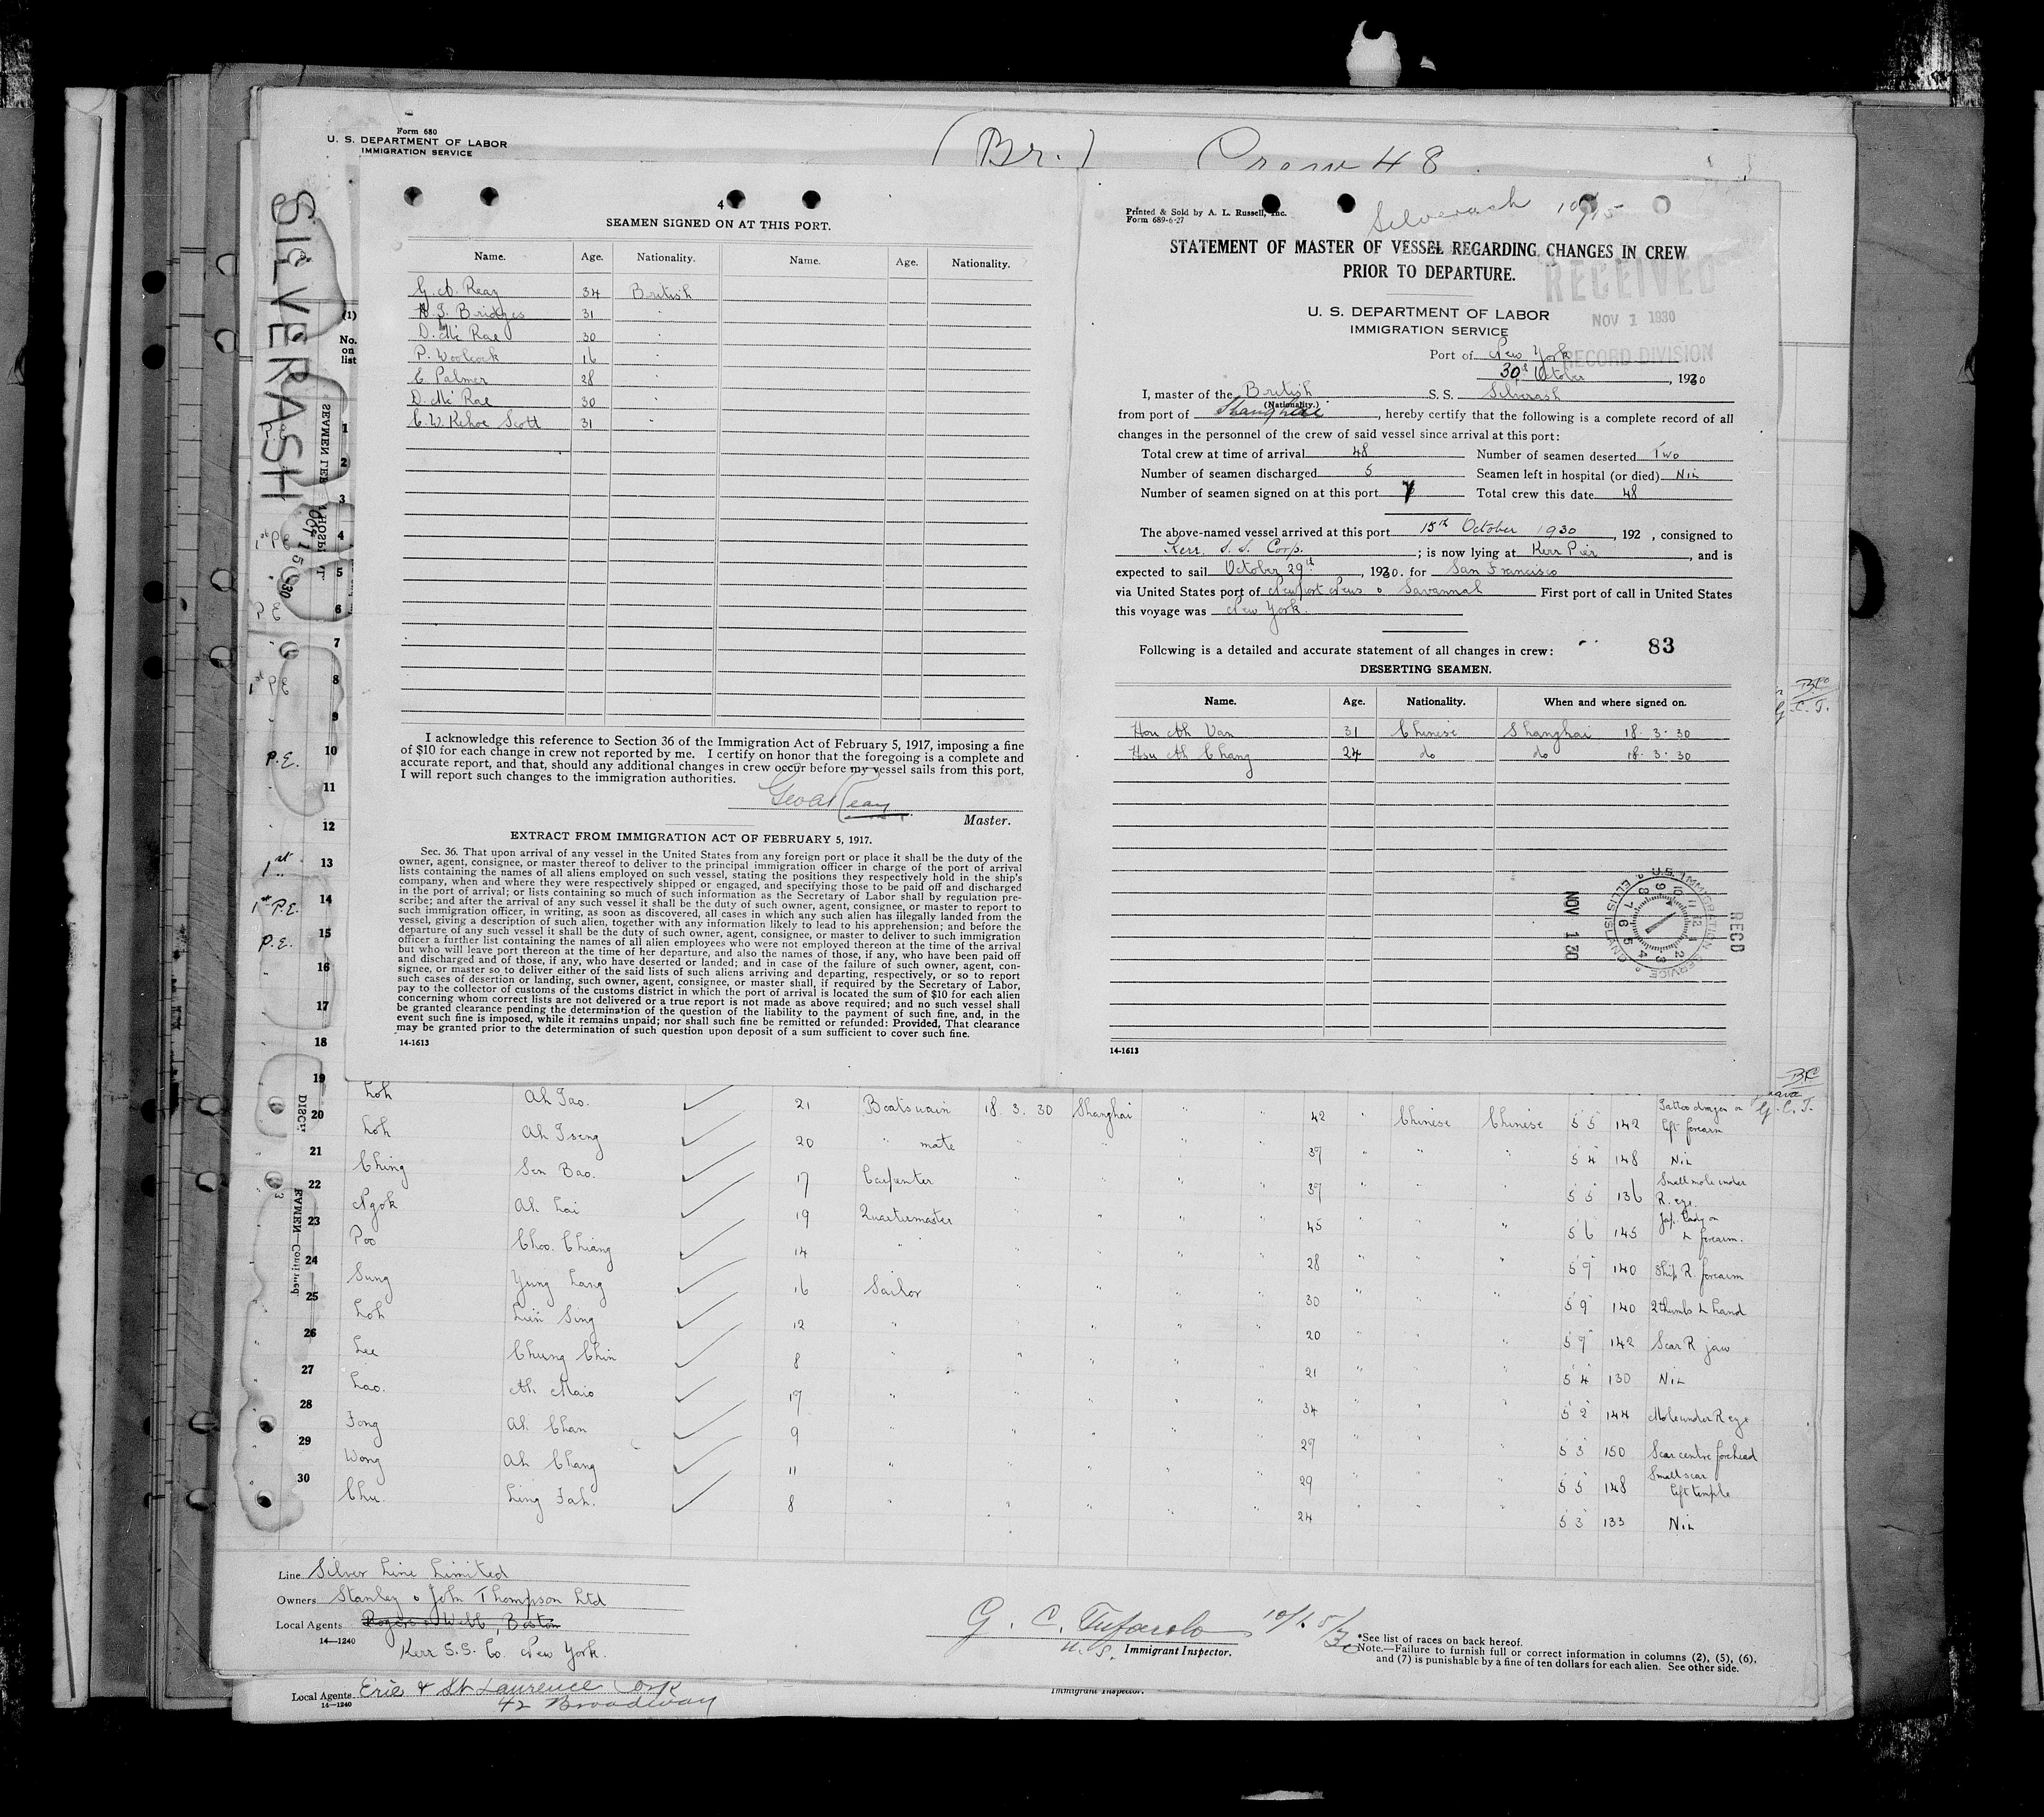 Form 680
U. S. DEPARTMENT OF LABOR
IMMIGRATION SERVICE
(Br.)
Crew 48
SILVERASH
OCT 15 1930
(1)
No.
on
list
4
SEAMEN SIGNED ON AT THIS PORT.
Name. Age. Nationality. Name. Age. Nationality.
G. A. Reay 34 British
Bridges 31 "
D. Mc Rae 30 "
P. Woolcock 16 "
C Palmer 28 "
D. Mc Rae 30 "
C. W. Kehoe Scott 31 "
I acknowledge this reference to Section 36 of the Immigration Act of February 5, 1917, imposing a fine
of $10 for each change in crew not reported by me. I certify on honor that the foregoing is a complete and
accurate report, and that, should any additional changes in crew occur before my vessel sails from this port,
I will report such changes to the immigration authorities.
Geo A Reay
Master.
EXTRACT FROM IMMIGRATION ACT OF FEBRUARY 5, 1917.
Sec. 36. That upon arrival of any vessel in the United States from any foreign port or place it shall be the duty of the
owner, agent, consignee, or master thereof to deliver to the principal immigration officer in charge of the port of arrival
lists containing the names of all aliens employed on such vessel, stating the positions they respectively hold in the ship's
company, when and where they were respectively shipped or engaged, and specifying those to be paid off and discharged
in the port of arrival; or lists containing so much of such information as the Secretary of Labor shall by regulation pre-
scribe; and after the arrival of any such vessel it shall be the duty of such owner, agent, consignee, or master to report to
such immigration officer, in writing, as soon as discovered, all cases in which any such alien has illegally landed from the
vessel, giving a description of such alien, together with any information likely to lead to his apprehension; and before the
departure of any such vessel it shall be the duty of such owner, agent, consignee, or master to deliver to such immigration
officer a further list containing the names of all alien employees who were not employed thereon at the time of the arrival
but who will leave port thereon at the time of her departure, and also the names of those, if any, who have been paid off
and discharged and of those, if any, who have deserted or landed; and in case of the failure of such owner, agent, con-
signee, or master so to deliver either of the said lists of such aliens arriving and departing, respectively, or so to report
such cases of desertion or landing, such owner, agent, consignee, or master shall, if required by the Secretary of Labor,
pay to the collector of customs of the customs district in which the port of arrival is located the sum of $10 for each alien
concerning whom correct lists are not delivered or a true report is not made as above required; and no such vessel shall
be granted clearance pending the determination of the question of the liability to the payment of such fine, and, in the
event such fine is imposed, while it remains unpaid; nor shall such fine be remitted or refunded: Provided, That clearance
may be granted prior to the determination of such question upon deposit of a sum sufficient to cover such fine.
14-1613
Printed & Sold by A. L. Russell, Inc.
Form 689-6-27
Silverash 10/15
STATEMENT OF MASTER OF VESSEL REGARDING CHANGES IN CREW
PRIOR TO DEPARTURE.
RECEIVED
NOV 1 1930
RECORD DIVISION
U. S. DEPARTMENT OF LABOR
IMMIGRATION SERVICE
Port of New York
30th October, 1930
I, master of the British S. S. Silverash
(Nationality.)
from port of Shanghai, hereby certify that the following is a complete record of all
changes in the personnel of the crew of said vessel since arrival at this port:
Total crew at time of arrival 48 Number of seamen deserted Two
Number of seamen discharged 5 Seamen left in hospital (or died) Nil
Number of seamen signed on at this port 7 Total crew this date 48
The above-named vessel arrived at this port 15th October 1930, 192 , consigned to
Kerr S. S. Corp.; is now lying at Kerr Pier, and is
expected to sail October 29th, 1930. for San Francisco
via United States port of Newport News & Savannah First port of call in United States
this voyage was New York.
Following is a detailed and accurate statement of all changes in crew: 83
DESERTING SEAMEN.
Name. Age. Nationality. When and where signed on.
Hou Ah Van 31 Chinese Shanghai 18. 3. 30
Hsu Ah Chang 24 do do 18. 3. 30
RECD
NOV 1 30
U.S. IMMIGRATION SERVICE ELLIS ISLAND
14-1613
1
2
3
4 1st P.E
5
6 P E
7
8 1st P.E
9
10 P.E.
11
12
13 1st "
14 1st P.E.
15 P.E.
16
17
18
19 Loh Ah Tao. 21 Boatswain 18. 3. 30 Shanghai " " 42 Chinese Chinese 5 5 142 Tattoo dragon on left forearm
20 Loh Ah Tseng 20 " mate " " " " 37 " " " 5 4 148 Nil
21 Ching Sen Bao. 17 Carpenter " " " " 37 " " " 5 5 136 Small mole under R. eye.
22 Ngok Ah Lai 19 Quartermaster " " " " 45 " " " 5 6 145 Jap. Lady on L forearm.
23 Poo Choo Chiang 14 " " " " " 28 " " " 5 9 140 Ship R. forearm
24 Sung Yung Lang 16 Sailor " " " " 30 " " " 5 9 140 2 thumbs L hand
25 Loh Lien Sing 12 " " " " " 20 " " " 5 7 142 Scar R jaw
26 Lee Chung Chin 8 " " " " " 21 " " " 5 4 130 Nil
27 Lao. Ah Maio 17 " " " " " 34 " " " 5 2 144 Mole under R eye
28 Fong Ah Chan 9 " " " " " 27 " " " 5 3 150 Scar centre forehead
29 Wong Ah Chang 11 " " " " " 29 " " " 5 5 148 Small scar left temple
30 Chu. Ling Fah. 8 " " " " " 24 " " " 5 3 133 Nil
Line Silver Line Limited
Owners Stanley & John Thompson Ltd
Local Agents Rogers & Webb, Boston
14—1240
Kerr S.S. Co. New York.
G. C. Tufarolo 10/15/30
U.S. Immigrant Inspector.
*See list of races on back hereof.
Note.—Failure to furnish full or correct information in columns (2), (5), (6),
and (7) is punishable by a fine of ten dollars for each alien. See other side.
Local Agents Erie & St Laurence Corp
14—1240
42 Broadway
Immigrant Inspector.